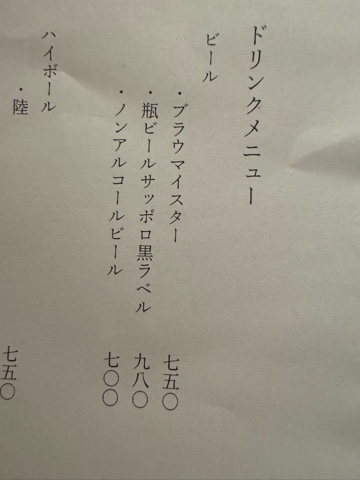 ドリンクメニュー
ビール
・ブラウマイスター 七五〇
・瓶ビールサッポロ黒ラベル 九八〇
・ノンアルコールビール 七〇〇
ハイボール
・陸 七五〇